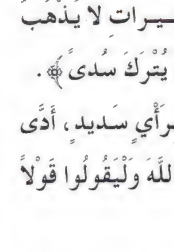 ـيرات لا يَذْهَبُ
يُتْرَكَ سُدىً﴾.
رأْيٍ سَديدٍ، أَدَّى
للَّهَ وَلْيَقُولُوا قَوْلاً